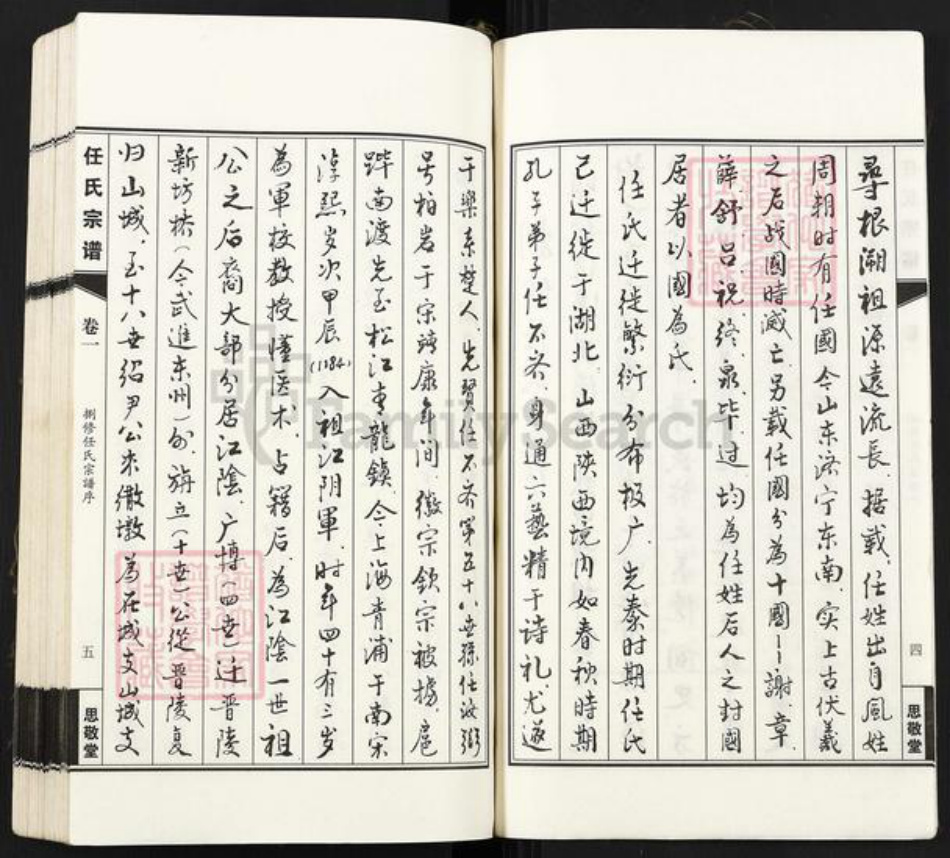 尋根溯祖源遠流長．据載．任姓出自風姓
周朝时有任國今山东济宁东南．实上古伏羲
之后战國時滅亡．另载任國分為十國——謝．章．
薛．舒．吕．祝．终．泉．毕．过．均為任姓后人之封國
居者以國為氏．
任氏迁徙繁衍分布极广．先秦时期任氏
已迁徙于湖北．山西陕西境内如春秋時期
孔子弟子任不齐．身通六藝精于诗礼．尤邃
四
思敬堂
于樂系楚人．先贤任不齐第五十八世孫任汝弼
号柏岩于宋靖康年间．徽宗钦宗被掳．扈
跸南渡先至松江青龍鎮．今上海青浦于南宋
淳熙岁次甲辰(1184)入祖江阴軍．时年四十有三岁
為軍校教授懂医术．占籍后．為江陰一世祖
公之后裔大部分居江陰．广博(四世)迁晋陵
新坊桥(今武進東州)別．旃立(十世)公從晋陵复
归山城．至十八世绍尹公來徽墩為在城支山城支
任氏宗谱
卷一
捌修任氏宗譜序
五
思敬堂
FamilySearch